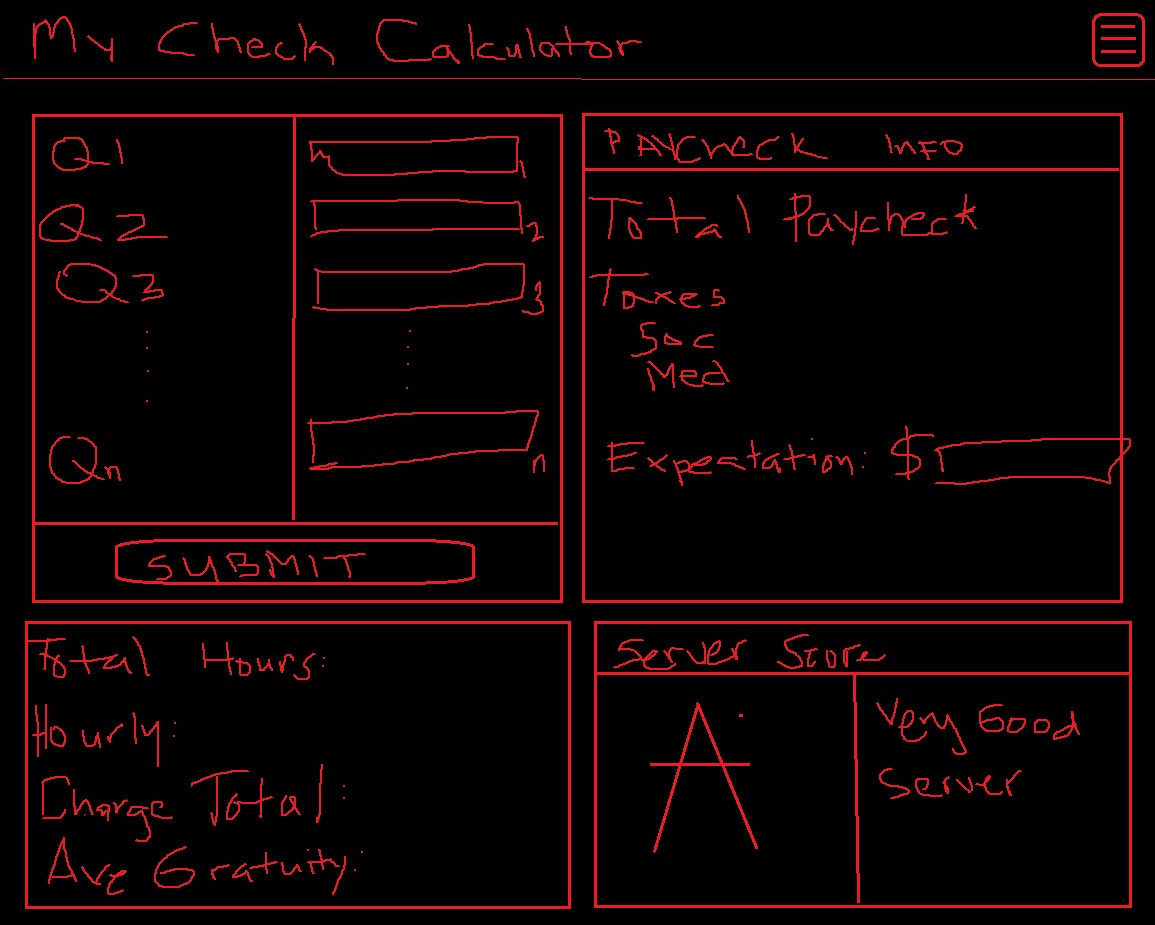 My Check Calculator
Q1
1
Q2
2
Q3
3
Qn
n
SUBMIT
PAYCHECK INFO
Total Paycheck
Taxes
Soc
Med
Expectation: $
Total Hours:
Hourly:
Charge Total:
Avg Gratuity:
Server Store
A
Very Good
Server